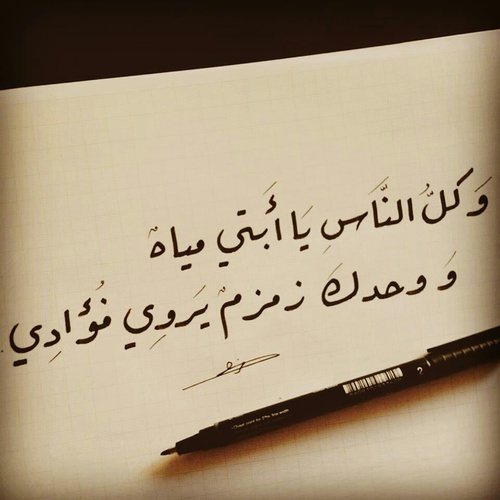 وَكلُّ النَّاسِ يَا أَبَتي مياهٌ
وَ وحدكَ زمزمٌ يَروِي فُؤَادِي.